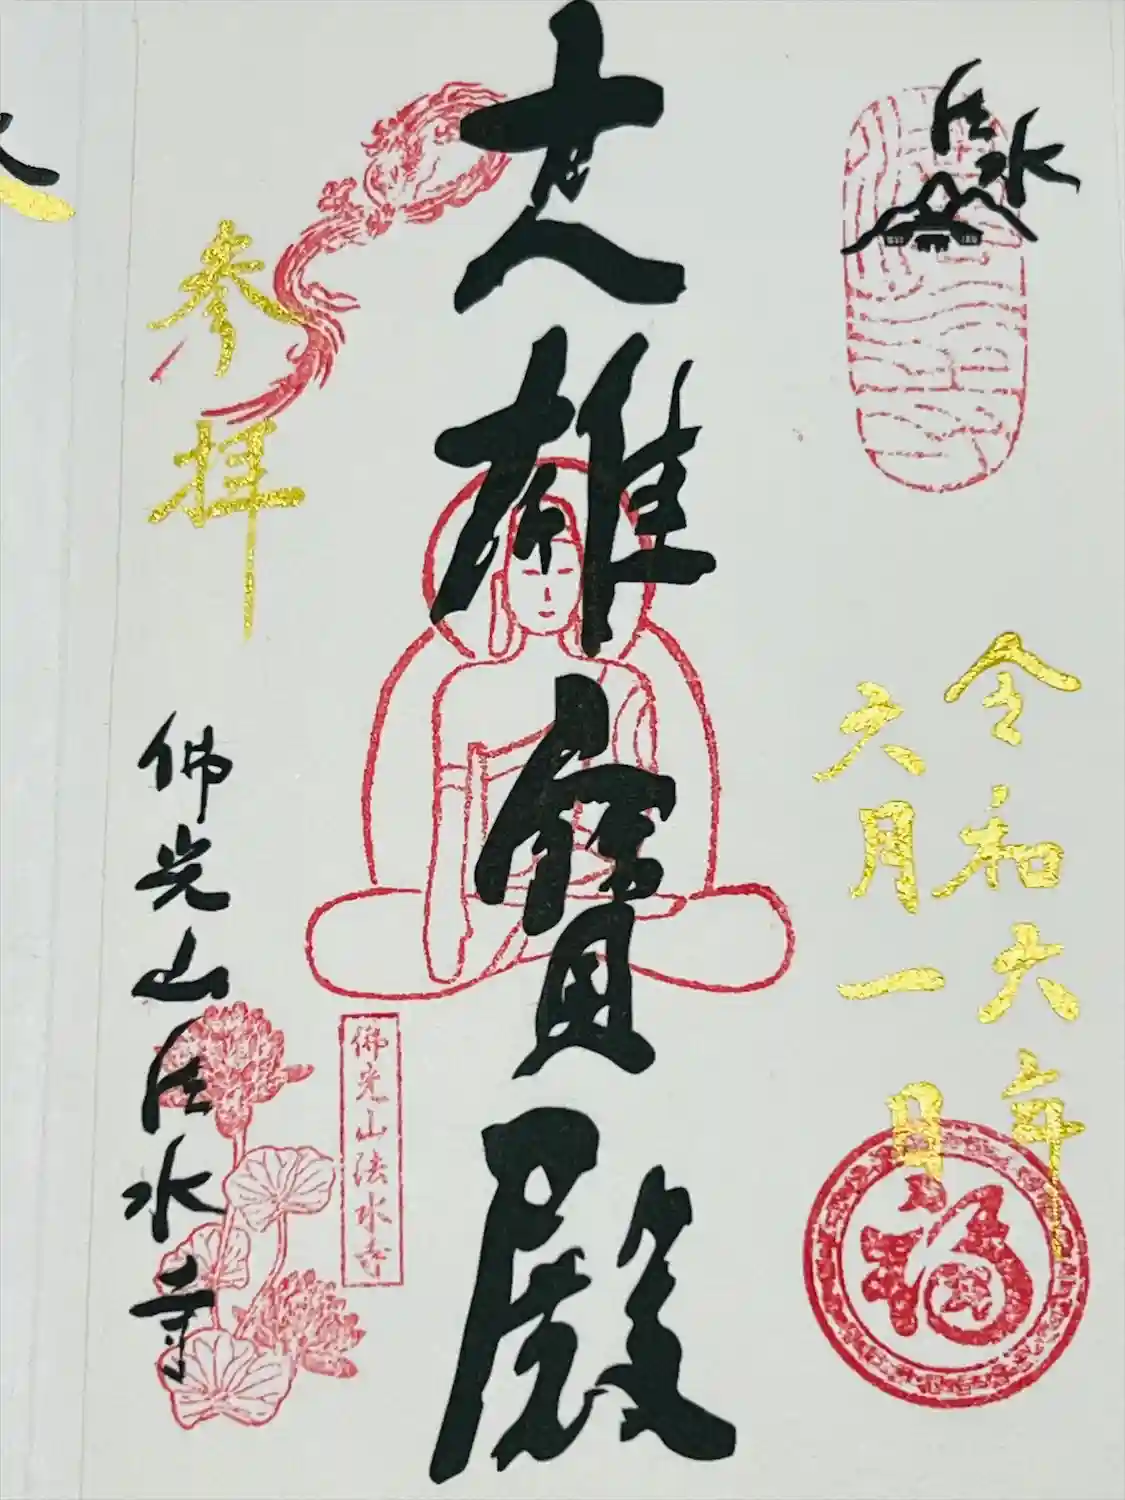 法水
令和六年
六月一日
大雄寶殿
佛光山法水寺
參拝
佛光山法水寺
福